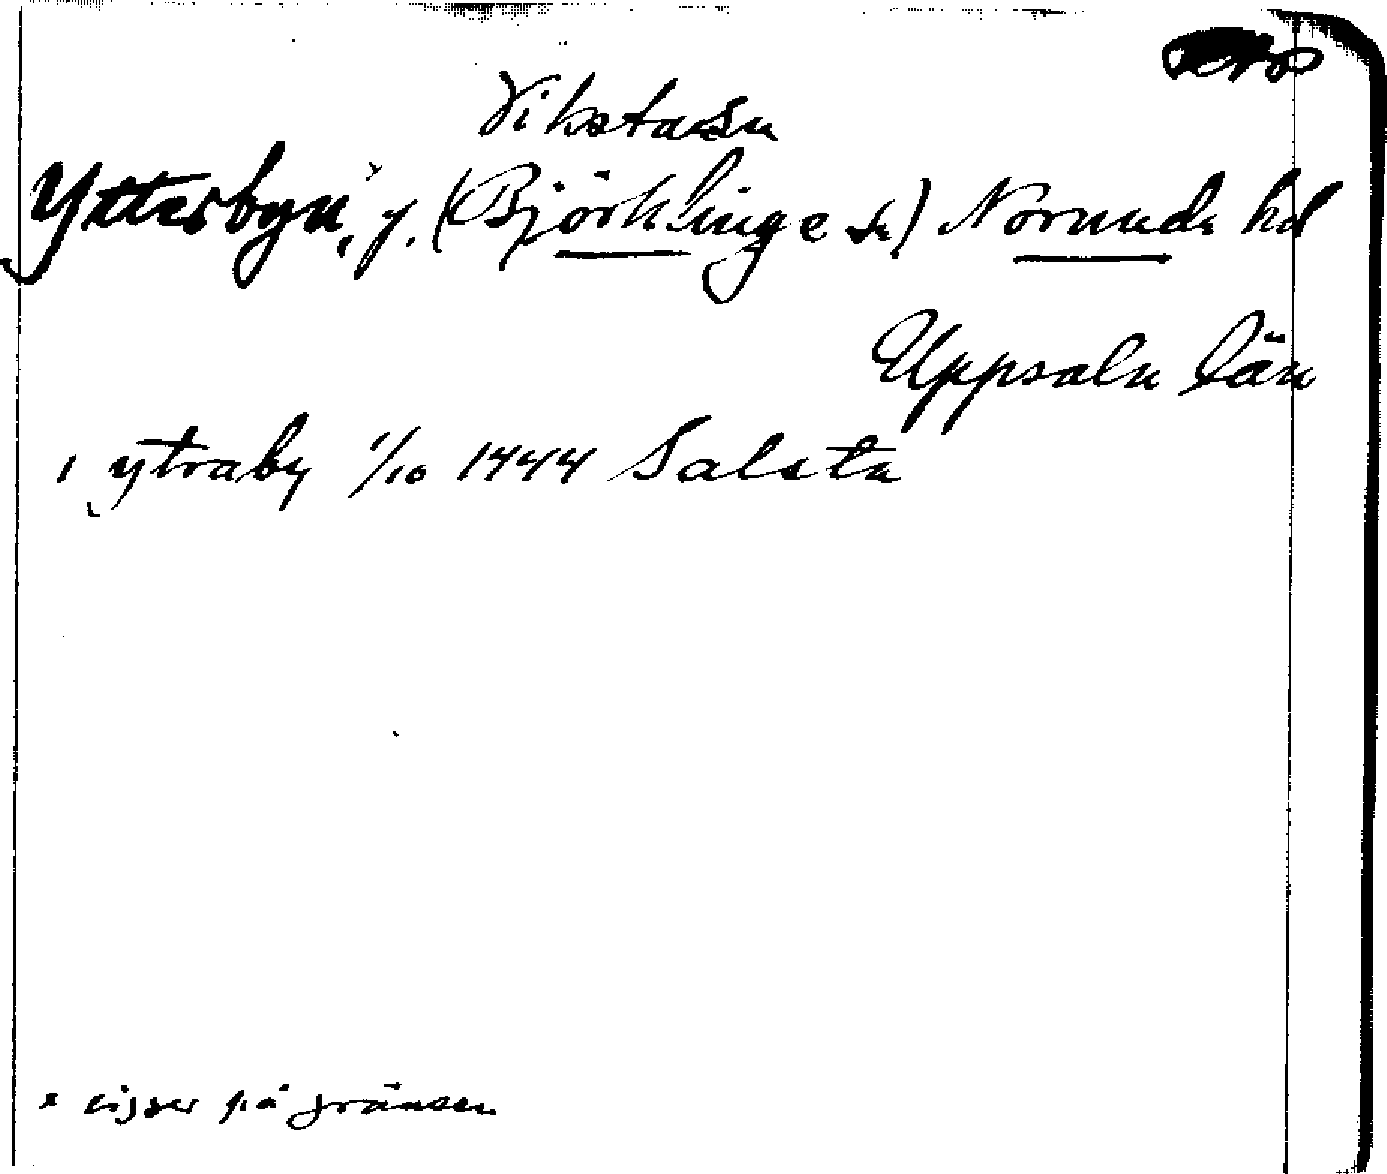 Viksta sn
Ytterbyn,ˣ g. (Björklinge sn) Norunda hd
Uppsala län
i ytraby 1/10 1444 Salsta
x ligger på gränsen